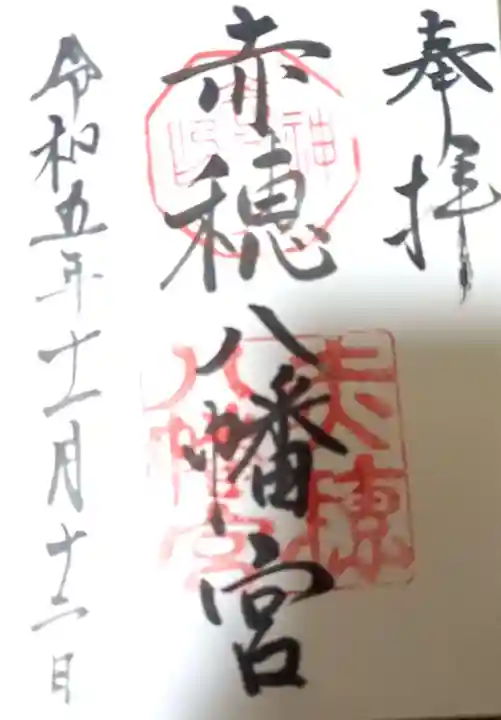 奉拝
赤穂八幡宮
令和五年十一月十二日
赤穂
八幡宮